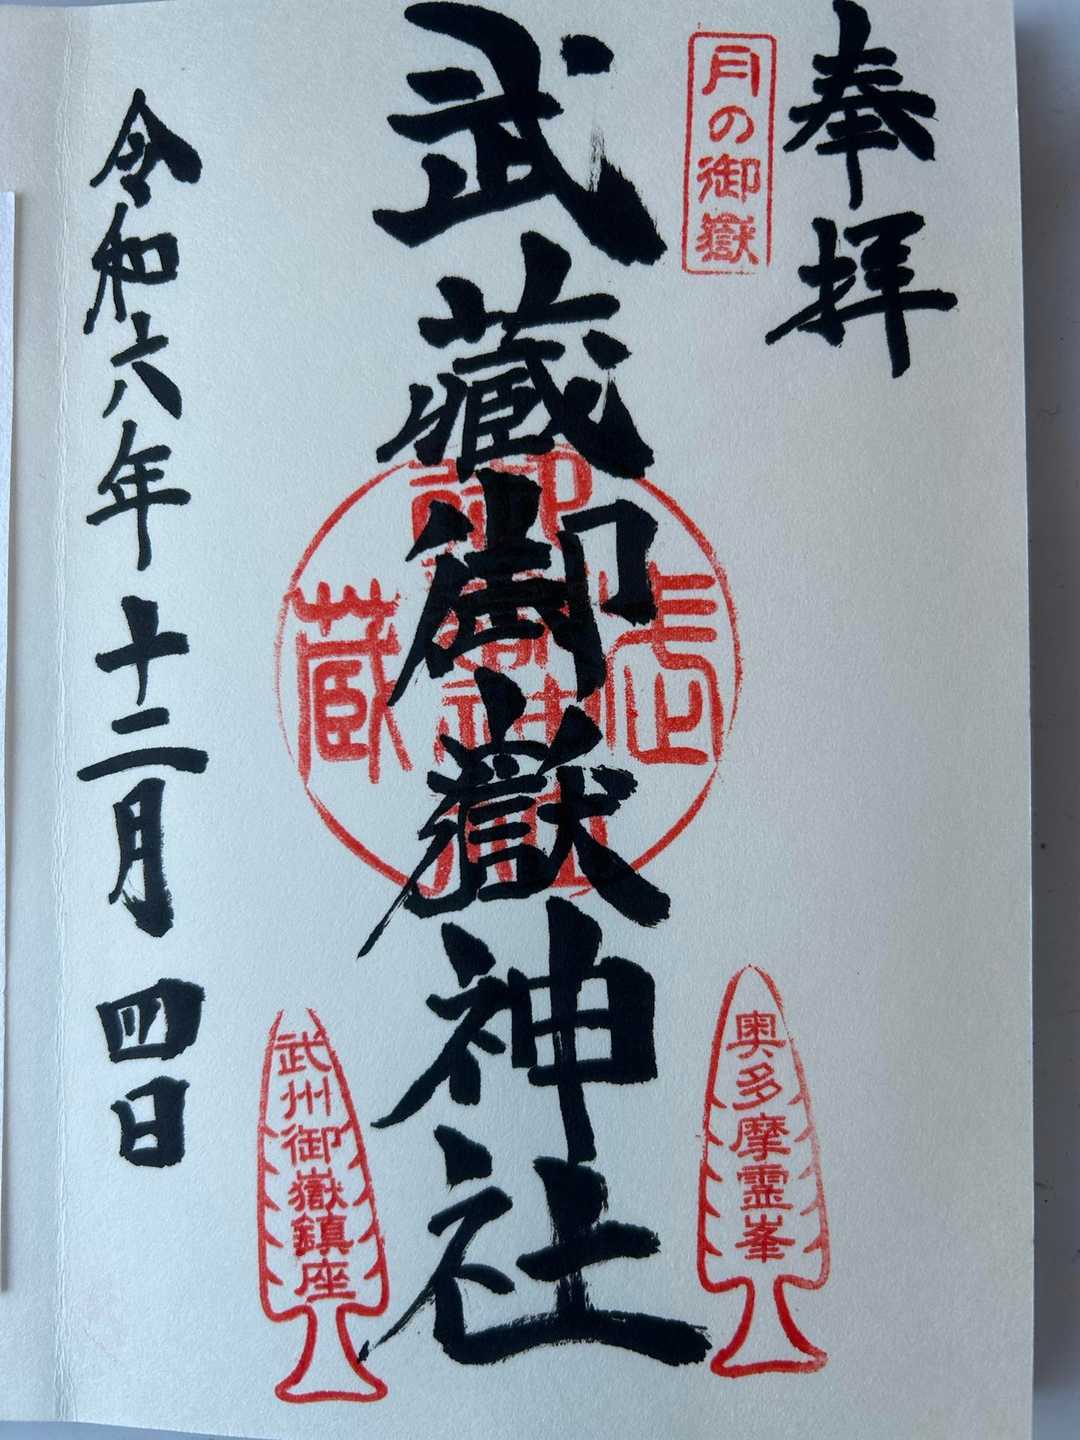 奉拝
月の御嶽
武蔵御嶽神社
武蔵
奥多摩霊峯
武州御嶽鎮座
令和六年十二月四日